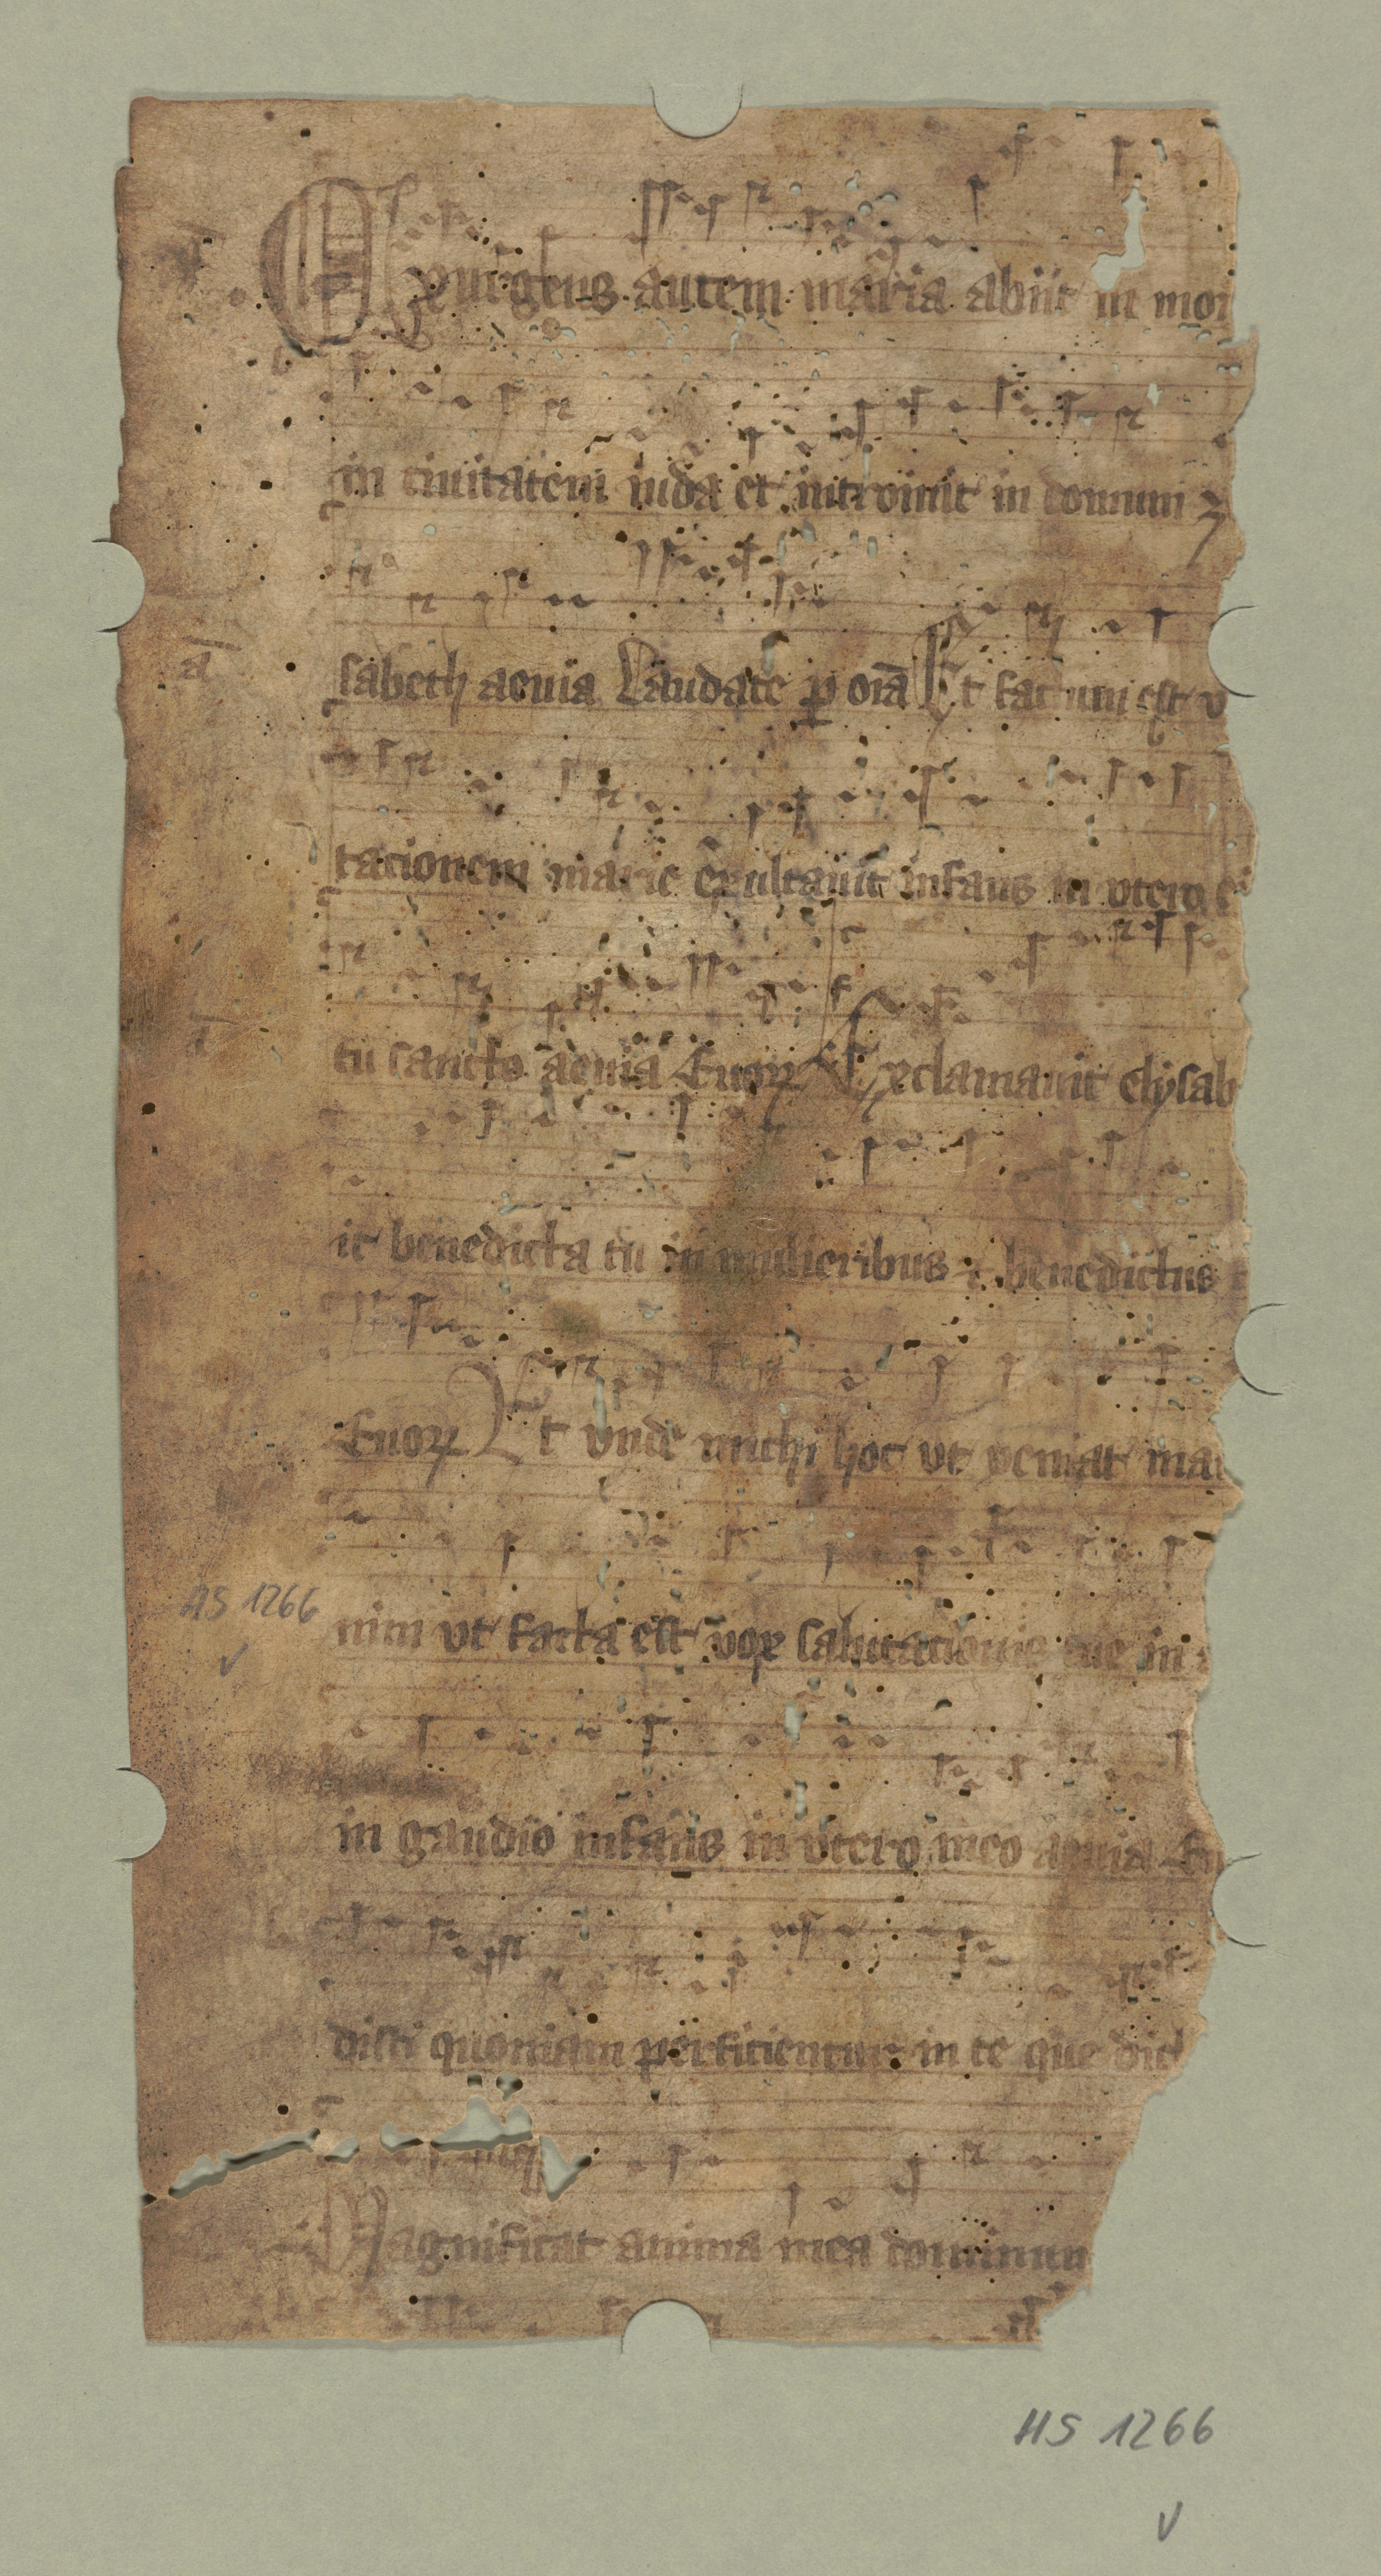 Exurgens autem maria abiit in mon
in ciuitatem iuda et introiuit in domum z
a
sabeth aeuia Laudate p oia Et factum est v
tacionem marie exultauit infans in vtero e
tu sancto aeuia Euou Exclamauit elysab
it benedicta tu in mulieribus et benedictus
Euou Et vnde michi hoc vt veniat ma
HS 1266
nim vt facta est vox salutacionis tue in
v
in gaudio infans in vtero meo aeuia Eu
disti quoniam perficientur in te que dict
Magnificat anima mea dominum
HS 1266
v